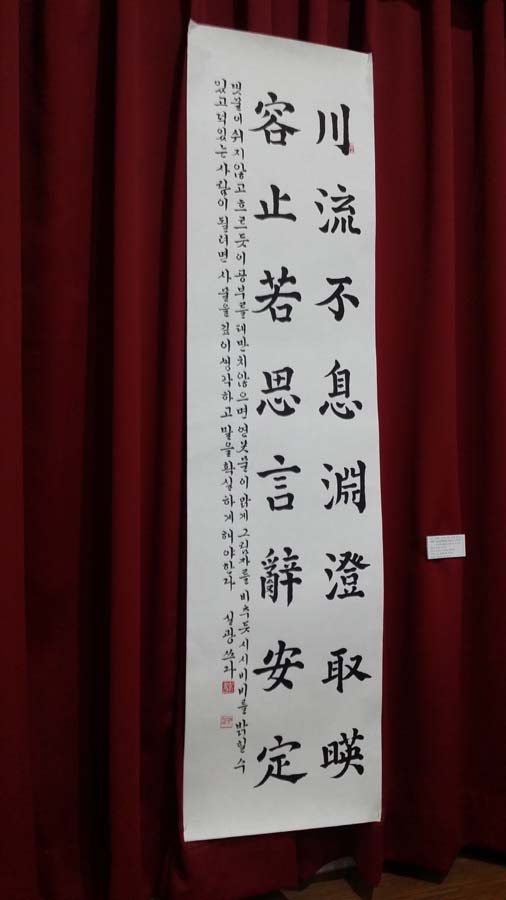 川流不息淵澄取暎
容止若思言辭安定
냇물이 쉬지 않고 흐르듯이 공부를 태만치 않으면 연못물이 맑게 그림자를 비추듯 시시비비를 밝힐 수
있고 덕있는 사람이 될려면 사물을 깊이 생각하고 말을 확실하게 해야한다 실광 쓰다